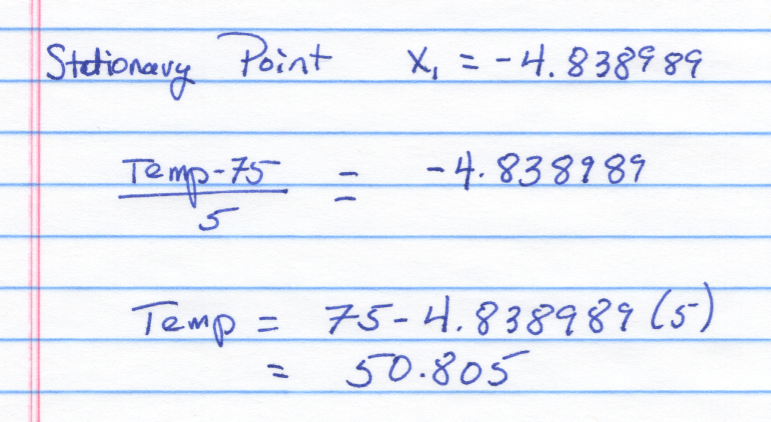 Stationary Point X₁ = -4.838989
Temp-75 / 5 = -4.838989
Temp = 75-4.838989(5)
= 50.805